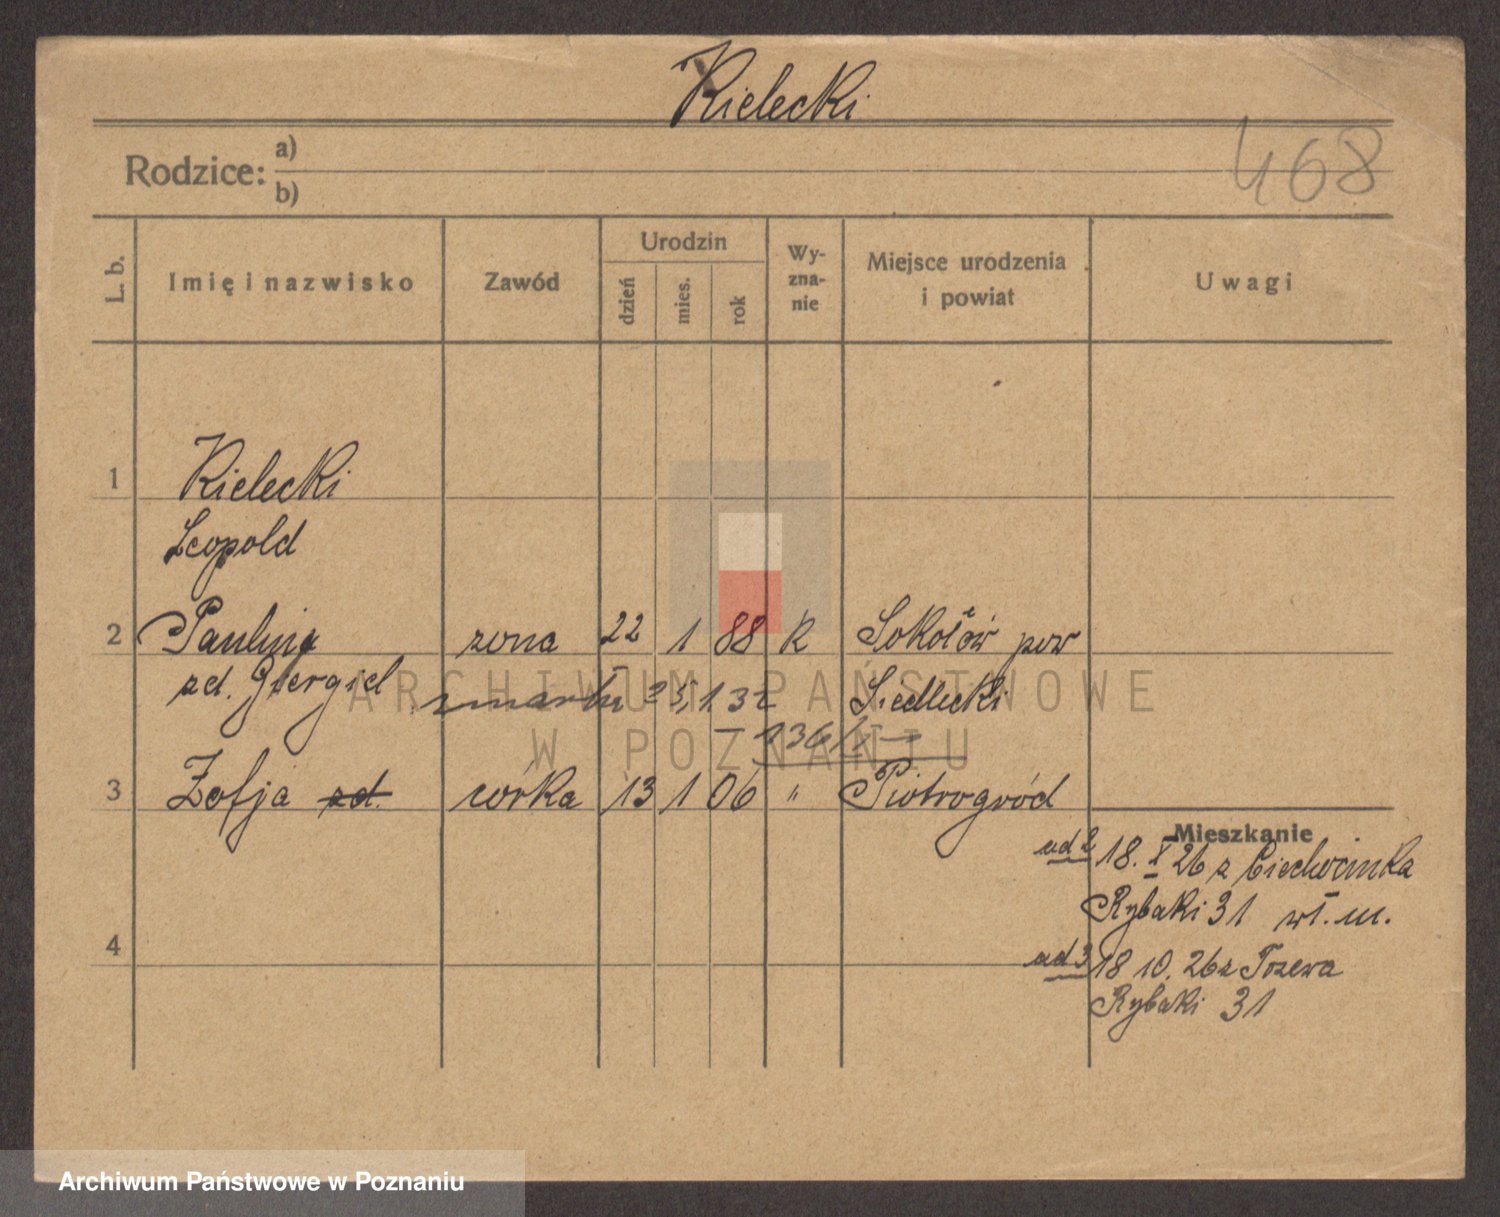 Kielecki
468
Rodzice: a)
b)
L. b.
Imię i nazwisko
Zawód
Urodzin
dzień
mies.
rok
Wy-
zna-
nie
Miejsce urodzenia
i powiat
Uwagi
1 Kielecki
Leopold
2 Paulina zona 22 1 88 K Sokołów pow
zd. Giergiel zmarła 25, 1 32 Siedlecki
136/
3 Zofja zd. córka 13 1 06 " Piotrogród
Mieszkanie
ad 2 18. X 26 z Ciechocinka
Rybaki 31 wł. m.
4
ad 3 18 10. 26 z Tczewa
Rybaki 31
ARCHIWUM PAŃSTWOWE
W POZNANIU
Archiwum Państwowe w Poznaniu